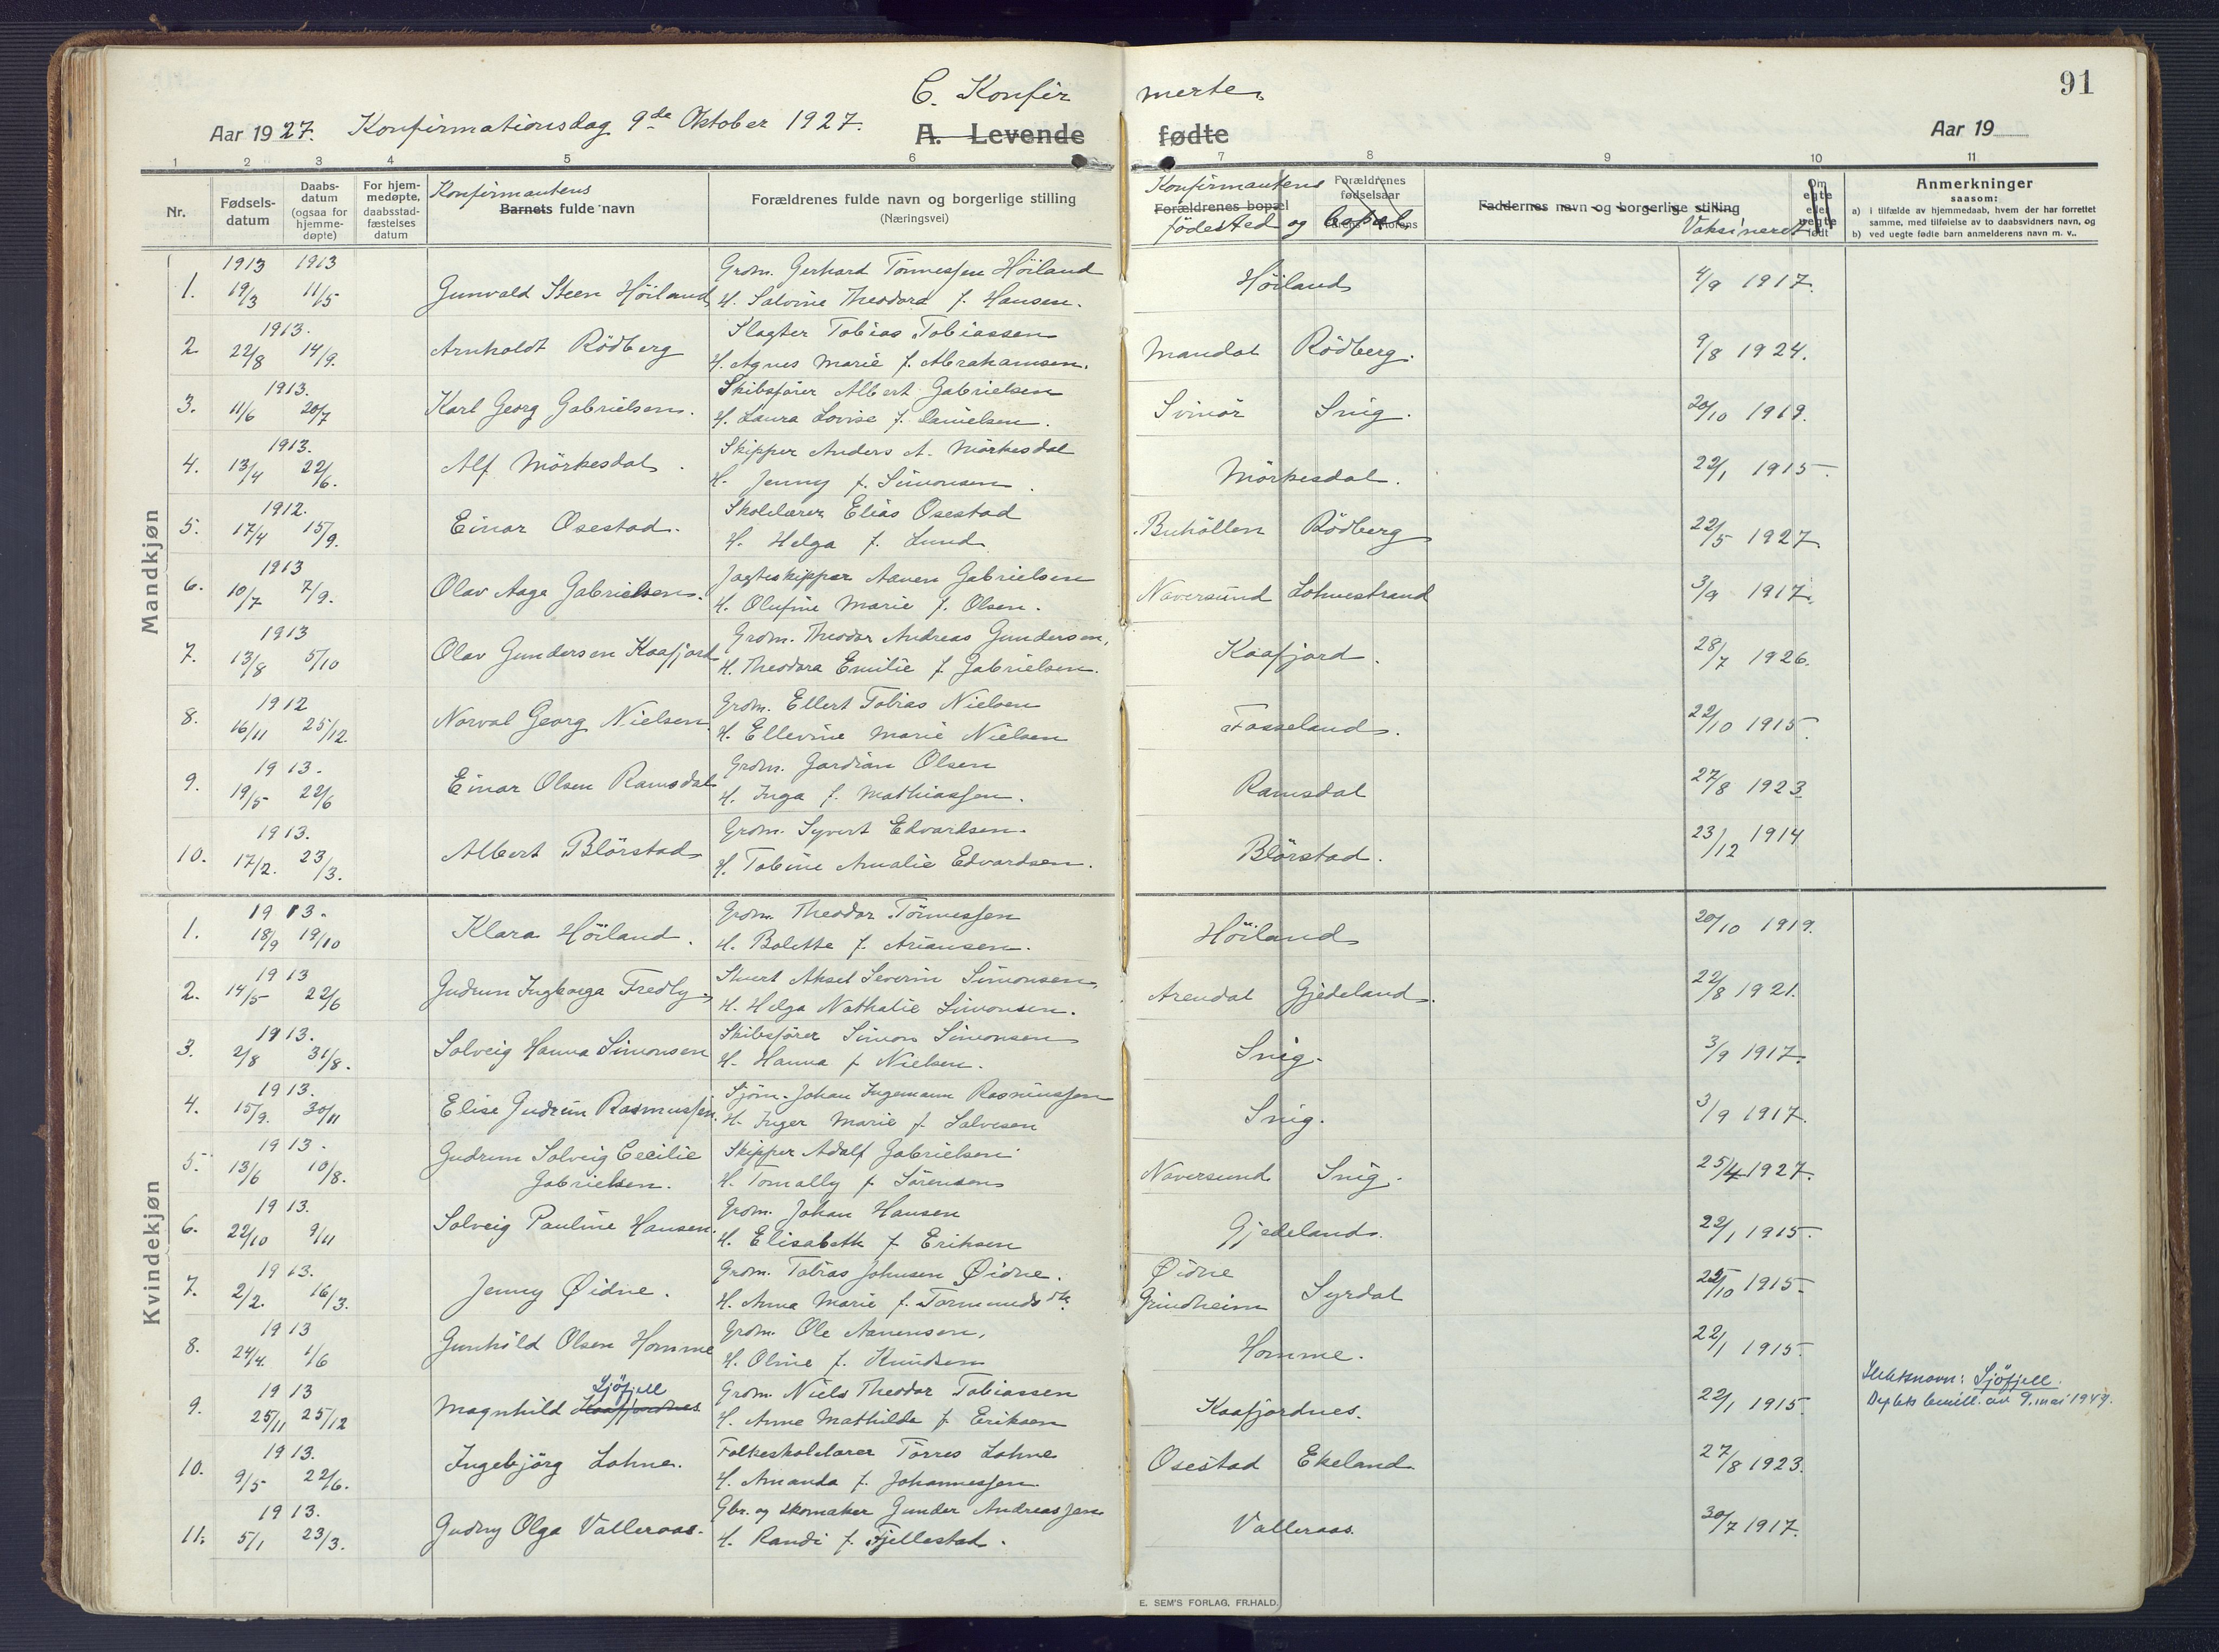 91
C. Konfirmerte.
Aar 1927. Konfirmationsdag 9de Oktober 1927. A. Levende fødte Aar 19
1 2 3 4 5 6 7 8 9 10 11
Nr. Fødselsdatum Daabsdatum (ogsaa for hjemmedøpte) For hjemmedøpte, daabsstadfæstelses datum Konfirmantens Barnets fulde navn Forældrenes fulde navn og borgerlige stilling (Næringsvei) Konfirmantens Forældrenes bopæl fødested og bopæl Forældrenes fødselsaar Faddernes navn og borgerlige stilling Vaksineret Om egte eller uegte født Anmerkninger saasom:
a) i tilfælde av hjemmedaab, hvem der har forrettet samme, med tilføielse av to daabsvidners navn, og
b) ved uegte fødte barn anmelderens navn m. v..
Mandkjøn
1913 1913 Grdm. Gerhard Tönnessen Höiland
1. 19/3 11/5 Gunvald Steen Höiland H. Salvine Theodora f. Hansen. Höiland 4/9 1917.
1913. Slagter Tobias Tobiassen
2 22/8 14/9. Arnholdt Rödberg H. Agnes Marie f. Abrahamsen. Mandal Rödberg. 9/8 1924.
1913. Skibsfører Albert Gabrielsen
3. 11/6 20/7 Karl Georg Gabrielsen. H. Laura Lovise f. Danielsen. Svinör Snig. 20/10 1919.
1913. Skipper Anders A. Mörkesdal
4. 13/4 22/6. Alf Mörkesdal. H. Jenny f. Simonsen. Mörkesdal. 22/1 1915.
1912. Skolelærer Elias Osestad
5. 17/4 15/9. Einar Osestad. H. Helga f. Lund Buhöllen Rödberg 22/5 1927
1913 Jagteskipper Aanen Gabrielsen
6. 10/7 7/9. Olav Aage Gabrielsen. H. Olufine Marie f. Olsen. Naversund Lohnestrand 3/9 1917.
1913 Grdm. Theodor Andreas Gundersen,
7. 13/8 5/10 Olav Gundersen Kaafjord H. Theodora Emilie f. Gabrielsen. Kaafjord. 28/7 1926.
1912 Grdm. Ellert Tobias Nielsen
8. 16/11 25/12. Norval Georg Nielsen. H. Ellevine Marie Nielsen Fasseland. 22/10 1915.
1913. Grdm. Gardian Olsen
9. 19/5 22/6 Einar Olsen Ramsdal H. Inga f. Mathiassen. Ramsdal 27/8 1923
1913. Grdm. Syvert Edvardsen.
10. 17/2. 23/3. Albert Blörstad H. Tobine Amalie Edvardsen. Blörstad. 23/12 1914
Kvindekjøn
1913. Grdm. Theodor Tönnessen
1. 18/9 19/10 Klara Höiland. H. Bolette f. Ariansen. Höiland 20/10 1919.
1913 Stuert Aksel Severin Simonsen,
2. 14/5 22/6 Gudrun Ingborga Fredly. H. Helga Nathalie Simonsen. Arendal Gjedeland. 22/8 1921.
1913. Skibsfører Simon Simonsen
3. 2/8 31/8. Solveig Hanna Simonsen H. Hanna f Nielsen. Snig. 3/9 1917.
1913. Sjöm. Johan Ingemann Rasmussen
4. 15/9. 30/11 Elise Gudrun Rasmussen. H. Inger Marie f. Salvesen Snig. 3/9 1917.
1913. Gudrun Solveig Cecilie Skipper Adolf Gabrielsen
5. 13/6 10/8. Gabrielsen. H. Tomally f Sörensen Naversund Snig. 25/4 1927.
1913. Grdm. Johan Hansen
6. 22/10 9/11 Solveig Pauline Hansen. H. Elisabeth f Eriksen Gjedeland. 22/1 1915.
1913. Grdm. Tobias Johnsen Øidne. Øidne
7. 2/2. 16/3. Jenny Øidne. H. Anna Marie f. Tormundsdtr. Grindheim Syrdal 22/10 1915
1913 Grdm. Ole Aanensen,
8. 24/4. 1/6 Gunhild Olsen Homme H. Oline f. Knudsen Homme. 22/1 1915.
1913 Sjöfjell Grdm. Niels Theodor Tobiassen Slektsnavn: Sjöfjell.
9. 25/11 25/12 Magnhild Kaafjordnes. H. Anne Mathilde f. Eriksen Kaafjordnes. 22/1 1915. Deptets bevill. av 9. mai 1947.
1913. Folkeskolelærer Törres Lohne
10. 9/5 22/6. Ingebjörg Lohne. H. Amanda f. Johannessen. Osestad Ekeland 27/8 1923.
1913. Gbr. og skomaker Gunder Andreas Jans
11. 5/1 23/3. Gudny Olga Valleraas. H. Randi f. Fjellestad. Valleraas. 30/7 1917.
E. SEM'S FORLAG, FR.HALD.